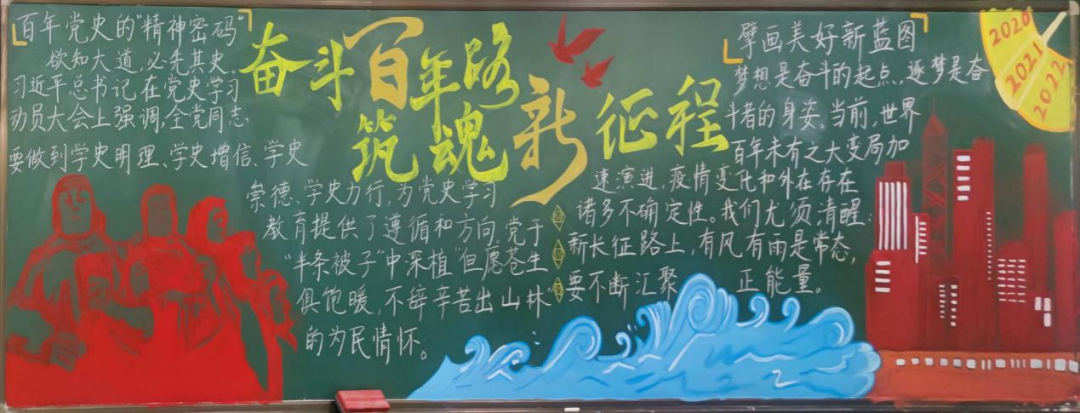 百年党史的"精神密码"
欲知大道,必先其史。
习近平总书记,在党史学习
动员大会上强调,全党同志、
要做到学史明理、学史增信、学史
崇德、学史力行,为党史学习
教育提供了遵循和方向,党于
"半条被子"中深植"但愿苍生
俱饱暖,不辞辛苦出山林"
的为民情怀。
奋斗百年路
筑魂新征程
擘画美好新蓝图
梦想是奋斗的起点、逐梦是奋
斗者的身姿、当前,世界
百年未有之大变局加
速演进,疫情变化和外在存在
诸多不确定性。我们尤须清醒:
新长征路上,有风有雨是常态,
要不断汇聚 正能量。
2020
2021
2022